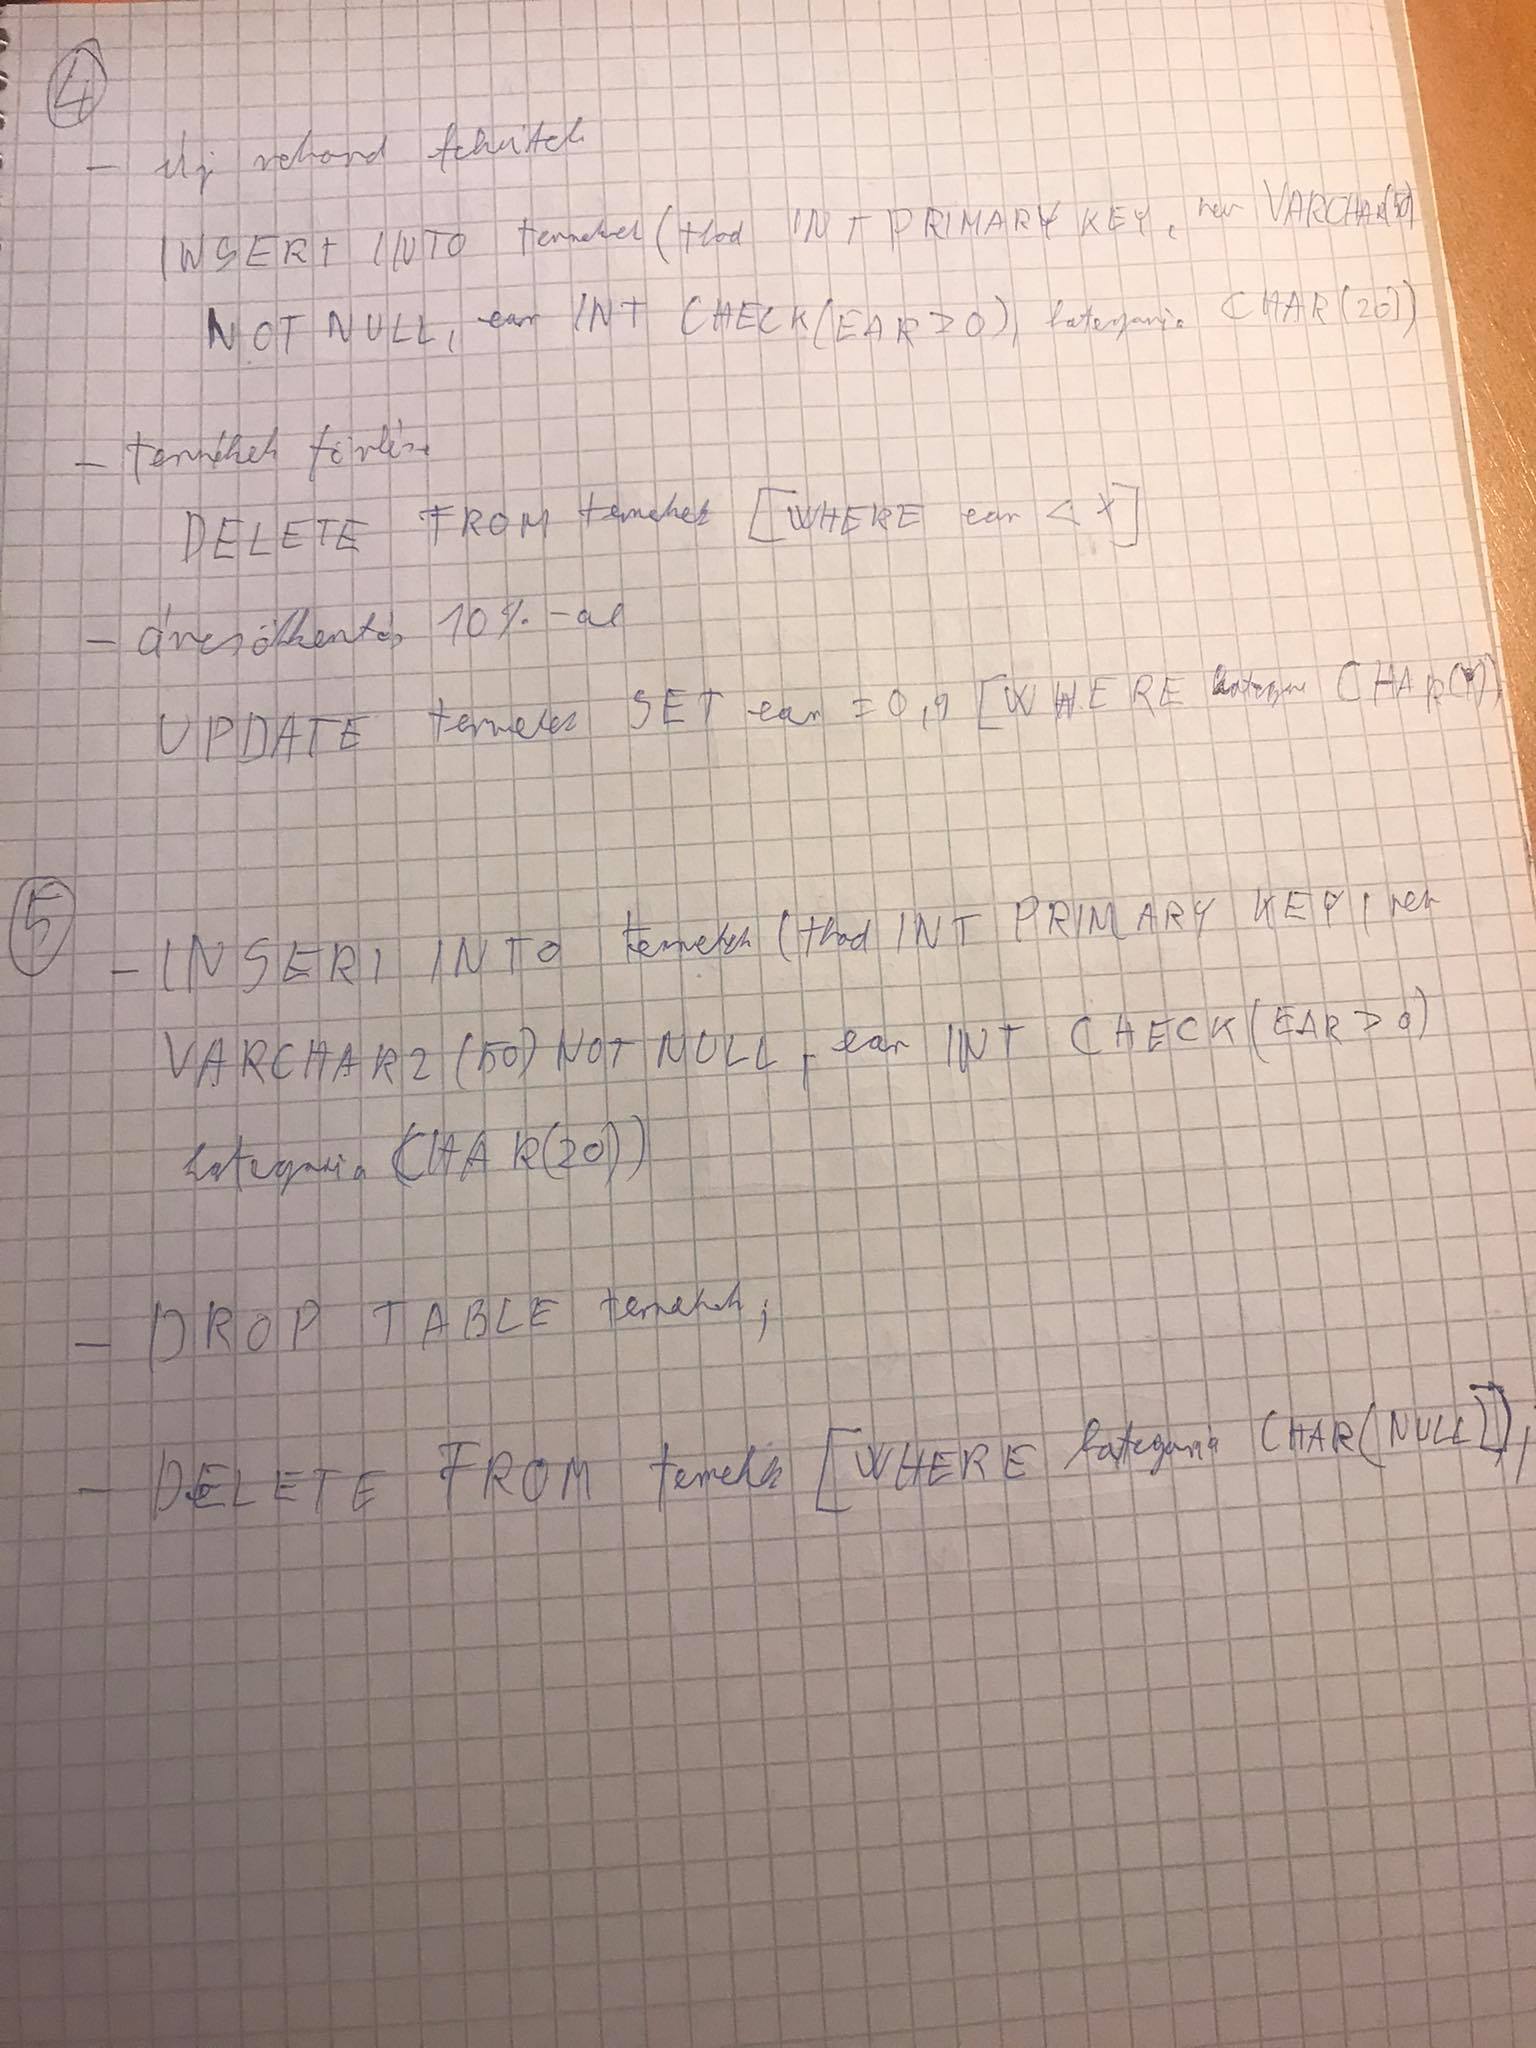 4
- új rekord felvitele
INSERT INTO termekek (tkod INT PRIMARY KEY, nev VARCHAR(50)
NOT NULL, ear INT CHECK(EAR>0), kategoria CHAR(20))
- termékek törlése
DELETE FROM termekek [WHERE ear < X]
- árcsökkentés 10%-al
UPDATE termekek SET ear = 0,9 [WHERE kategoria CHAR(Y)]
5
- INSERT INTO termekek (tkod INT PRIMARY KEY, nev
VARCHAR2 (50) NOT NULL, ear INT CHECK(EAR>0)
kategoria CHAR(20))
- DROP TABLE termekek;
- DELETE FROM termekek [WHERE kategoria CHAR(NULL)];